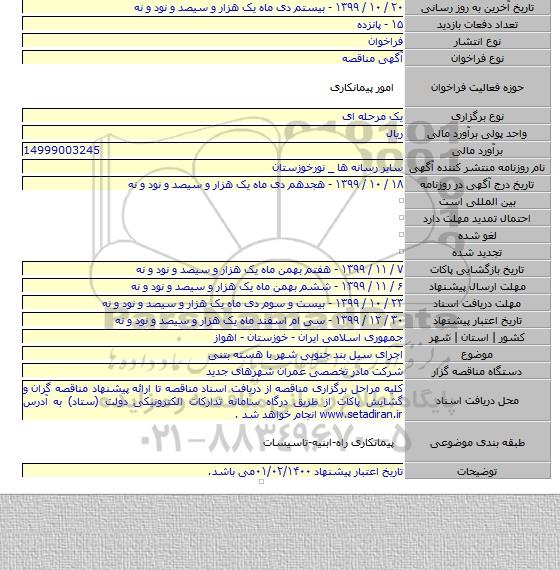 تاریخ آخرین به روز رسانی ۲۰ / ۱۰ / ۱۳۹۹ - بیستم دی ماه یک هزار و سیصد و نود و نه
تعداد دفعات بازدید ۱۵ - پانزده
نوع انتشار فراخوان
نوع فراخوان آگهی مناقصه
حوزه فعالیت فراخوان امور پیمانکاری
نوع برگزاری یک مرحله ای
واحد پولی برآورد مالی ریال
برآورد مالی 14999003245
نام روزنامه منتشر کننده آگهی سایر رسانه ها _ نورخوزستان
تاریخ درج آگهی در روزنامه ۱۸ / ۱۰ / ۱۳۹۹ - هجدهم دی ماه یک هزار و سیصد و نود و نه
بین المللی است
احتمال تمدید مهلت دارد
لغو شده
تجدید شده
تاریخ بازگشایی پاکات ۷ / ۱۱ / ۱۳۹۹ - هفتم بهمن ماه یک هزار و سیصد و نود و نه
مهلت ارسال پیشنهاد ۶ / ۱۱ / ۱۳۹۹ - ششم بهمن ماه یک هزار و سیصد و نود و نه
مهلت دریافت اسناد ۲۳ / ۱۰ / ۱۳۹۹ - بیست و سوم دی ماه یک هزار و سیصد و نود و نه
تاریخ اعتبار پیشنهاد ۳۰ / ۱۲ / ۱۳۹۹ - سی ام اسفند ماه یک هزار و سیصد و نود و نه
کشور | استان | شهر جمهوری اسلامی ایران - خوزستان - اهواز
موضوع اجرای سیل بند جنوبی شهر با هسته بتنی
دستگاه مناقصه گزار شرکت مادر تخصصی عمران شهرهای جدید
کلیه مراحل برگزاری مناقصه از دریافت اسناد مناقصه تا ارائه پیشنهاد مناقصه گران و
محل دریافت اسناد گشایش پاکات از طریق درگاه سامانه تدارکات الکترونیکی دولت (ستاد) به آدرس
www.setadiran.ir انجام خواهد شد .
طبقه بندی موضوعی پیمانکاری راه-ابنیه-تاسیسات
توضیحات تاریخ اعتبار پیشنهاد ۰۱/۰۲/۱۴۰۰می باشد.
۰۲۱-۸۸۳۴۹۶۷۰-۵